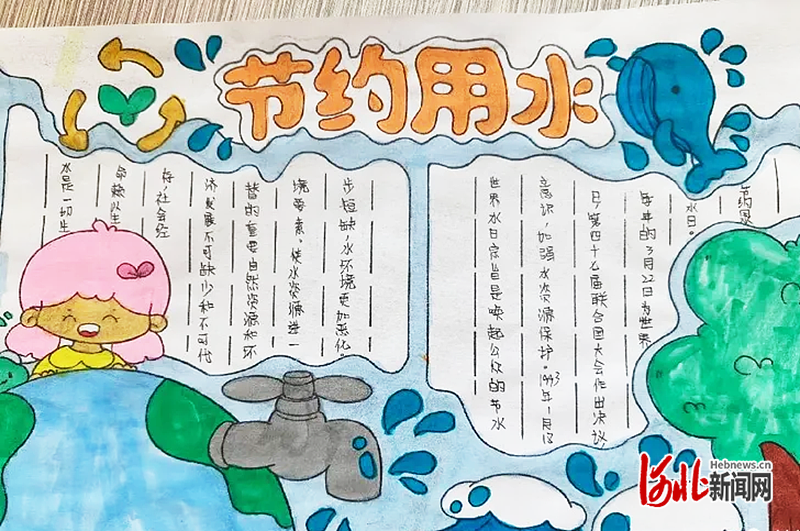 节约用水
水是一切生
命赖以生
存,社会经
济发展不可缺少和不可代
替的重要自然资源和环
境要素。使水资源进一
步短缺,水环境更加恶化。
世界水日宗旨是唤起公众的节水
意识,加强水资源保护。1993年1月18
日,第四十七届联合国大会作出决议,
每年的3月22日为世界
水日。
节约
Hebnews.cn
河北新闻网